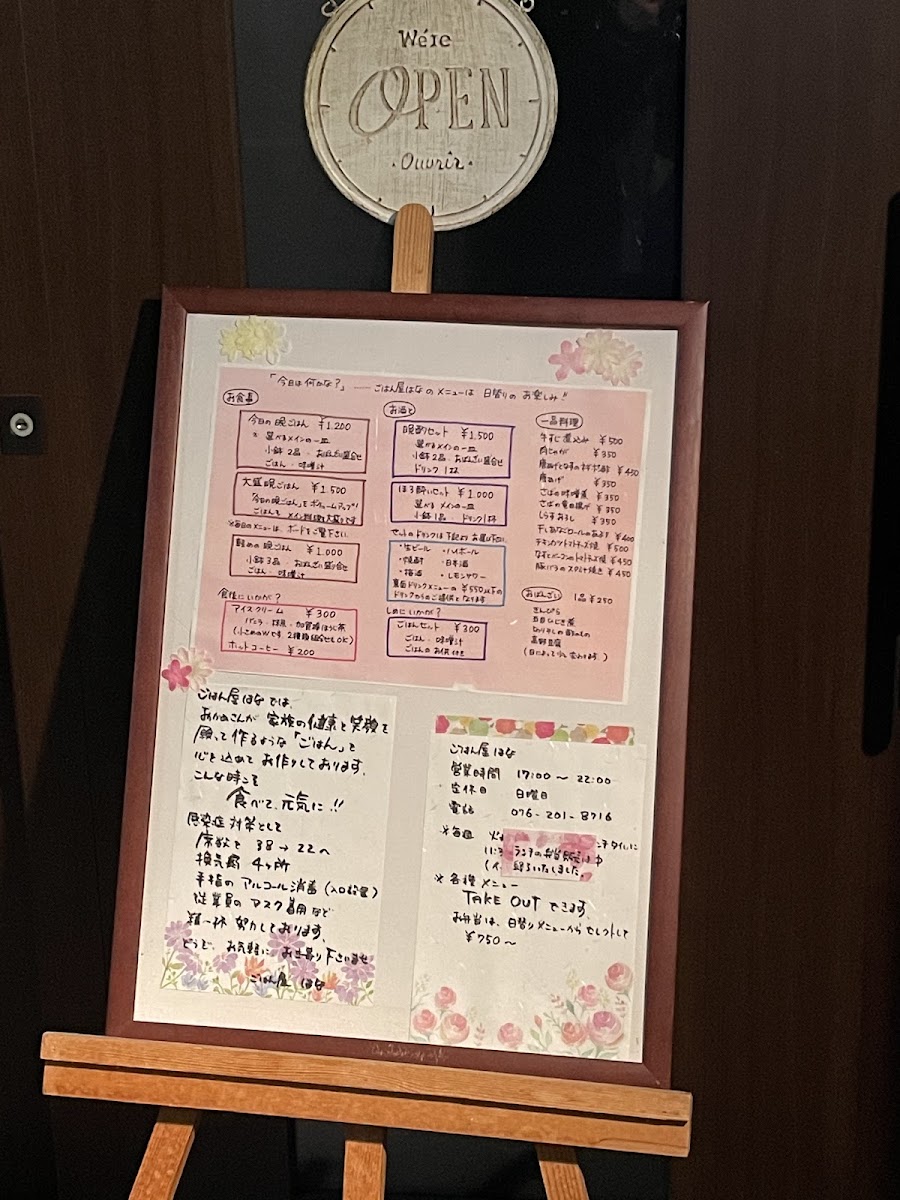 We're
OPEN
・Ouvrir・
「今日は何かな?」 ── ごはん屋はなのメニューは 日替りの お楽しみ!!
お食事
今日の晩ごはん ¥1,200
選べるメインの一皿
小鉢 2品 ・ おばんざい盛合せ
ごはん ・ 味噌汁
大盛晩ごはん ¥1,500
「今日の晩ごはん」をボリュームアップ!
ごはんとメイン料理を大盛りです
※毎日のメニューは、ボードをご覧下さい。
軽めの晩ごはん ¥1,000
小鉢 3品 ・ おばんざい盛合せ
ごはん ・ 味噌汁
食後にいかが?
アイスクリーム ¥300
バニラ・抹茶・加賀棒ほうじ茶
(小さめのWです 2種類組合せもOK)
ホットコーヒー ¥200
お酒と
晩酌セット ¥1,500
選べるメインの一皿
小鉢 2品 ・ おばんざい盛合せ
ドリンク 1杯
ほろ酔いセット ¥1,000
選べるメインの一皿
小鉢 1品 ・ ドリンク1杯
セットのドリンクは下記よりお選び下さい
・生ビール ・ハイボール
・焼酎 ・日本酒
・梅酒 ・レモンサワー
裏面ドリンクメニューの ¥550以下の
ドリンクからのご提供となります
しめにいかが?
ごはんセット ¥300
ごはん ・ 味噌汁
ごはんのお供付き
一品料理
牛すじ煮込み ¥500
肉じゃが ¥350
唐あげとなすのネギポン酢 ¥450
唐あげ ¥350
さばの味噌煮 ¥350
さばの竜田揚げ ¥350
しらすおろし ¥350
干しあなごロールのあぶり ¥400
チキンカツトマトチーズ焼 ¥500
なすとベーコンのトマトチーズ焼 ¥450
豚バラのスタミナ焼き ¥450
おばんざい 1品 ¥250
きんぴら
五目ひじき煮
切り干しの酢のもの
高野豆腐
(日によって少し変わります。)
ごはん屋はなでは、
おかあさんが 家族の健康と笑顔を
願って作るような「ごはん」を
心を込めて お作りしております。
こんな時こそ
食べて、元気に!!
感染症対策として
席数を 38→22へ
換気扇 4ヶ所
手指の アルコール消毒(入口設置)
従業員の マスク着用など
精一杯 努力しております。
どうぞ、お気軽に お立寄り下さいませ
ごはん屋 はな
ごはん屋 はな
営業時間 17:00 〜 22:00
定休日 日曜日
電話 076-201-8716
※毎週 火
ンチタイムに
ランチの弁当販売は
終了いたしました。
※各種メニュー
TAKE OUT できます。
お弁当は、日替りメニューからセレクトして
¥750〜